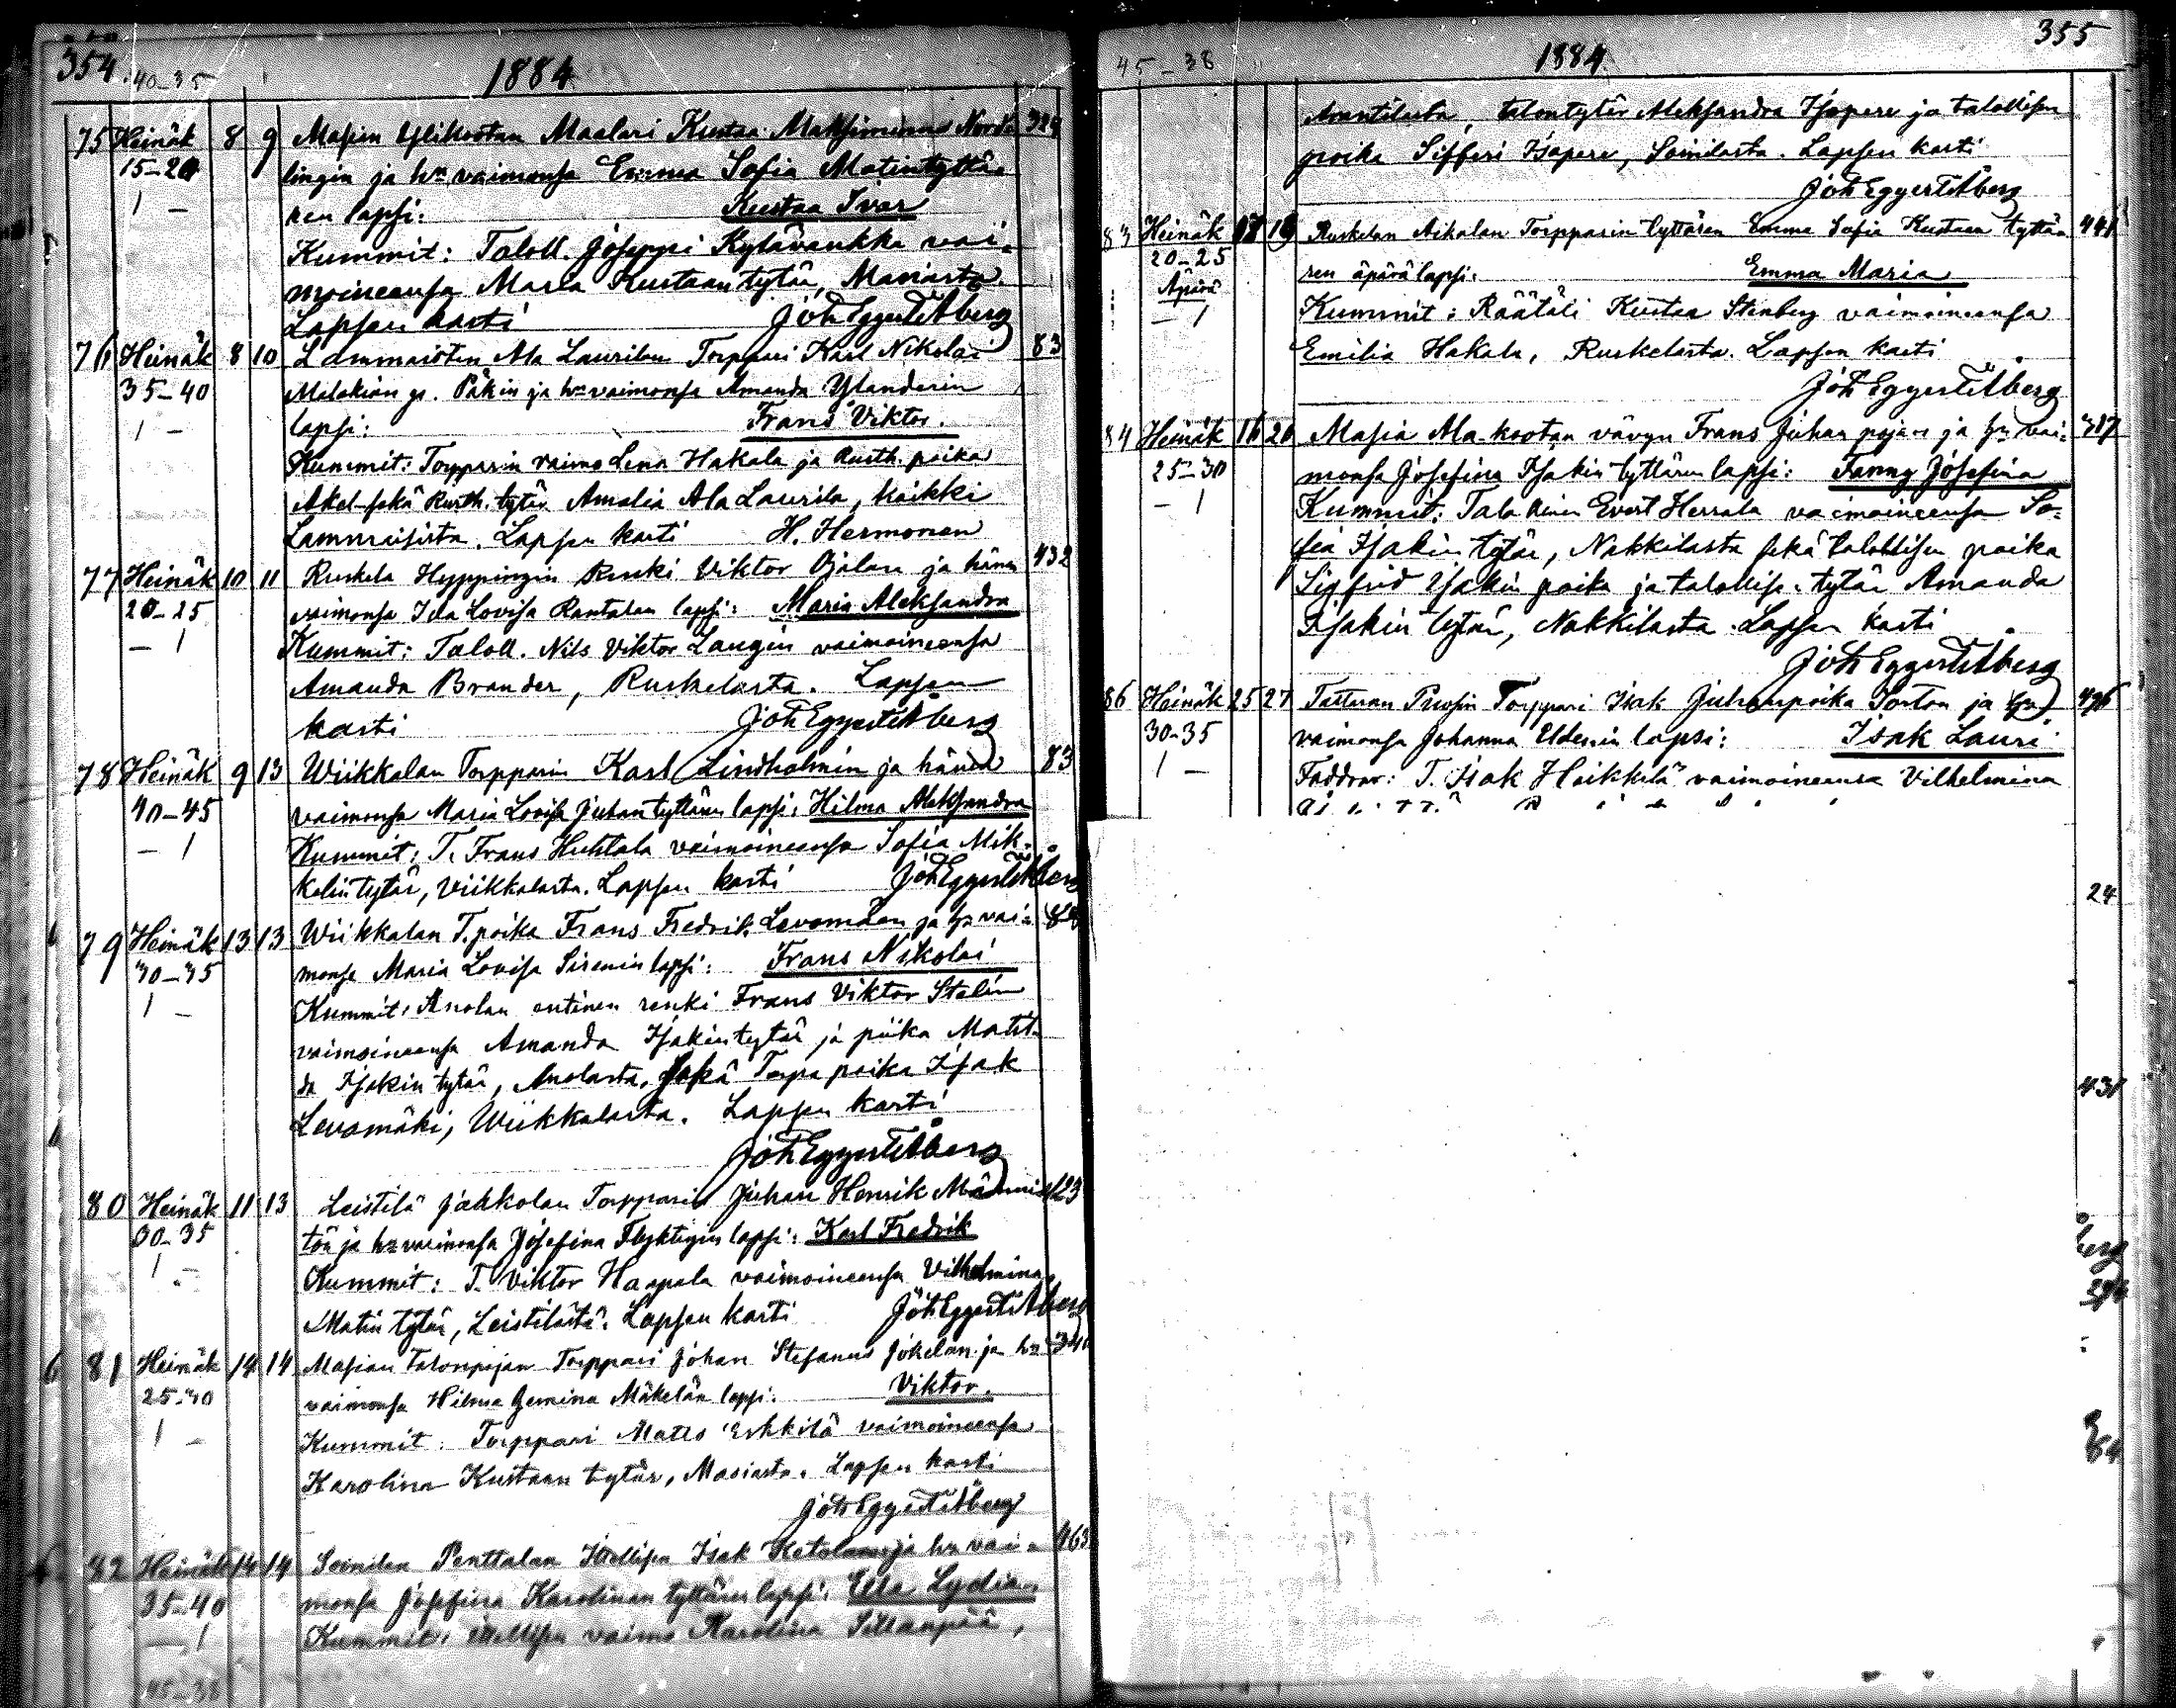 354. 40-35 1884
75 Heinäk 8 9 Masian Ylikootan Maalari Kustaa Maksimian Nord- 324
15-20 lingin ja hn vaimonsa Emma Sofia Matintyttä-
1 - ren lapsi: Kustaa Ivar
Kummit: Taloll. Joseppi Kylävaukka vai-
moineensa Maria Kustaantytär, Masiasta.
Lapsen kasti Joh Eggert Åberg
76 Heinäk 8 10 Lammaisten Ala Laurilan Torppari Karl Nikolai 83
35-40 Malakian p. Päkin ja hn vaimonsa Amanda Ylanderin
1 - lapsi: Frans Viktor.
Kummit: Torpparin vaimo Lena Hakala ja Rusth. poika
Akel sekä Rusth. tytär Amalia Ala Laurila, kaikki
Lammaisista. Lapsen kasti H. Hermonen
77 Heinäk 10 11 Ruskela Hyppingin Renki Viktor Ojalan ja hänen 432
20-25 vaimonsa Ida Lovisa Rantalan lapsi: Maria Aleksandra
- 1 Kummit: Taloll. Nils Viktor Laugin vaimoineensa
Amanda Brander, Ruskelasta. Lapsen
kasti Joh Eggert Åberg
78 Heinäk 9 13 Wiikkalan Torpparin Karl Lindholmin ja hänen 83
40-45 vaimonsa Maria Lovisa Juhantyttären lapsi: Hilma Aleksandra
- 1 Kummit: T. Frans Huhtala vaimoineensa Sofia Mik-
kelintytär, Viikkalasta. Lapsen kasti Joh Eggert Åberg
79 Heinäk 13 13 Wiikkalan T. poika Frans Fredrik Levomäen ja hn vai-
30-35 monsa Maria Lovisa Sirenin lapsi: Frans Nikolai
1 - Kummit: Anolan entinen renki Frans Viktor Stalin
vaimoineensa Amanda Isakintytär ja piika Matil-
da Isakin tytär, Anolasta, sekä Torp. poika Isak
Levomäki, Wiikkalasta. Lapsen kasti
Joh Eggert Åberg
80 Heinäk 11 13 Leistilä Jaakkolan Torpparin Juhan Henrik Männis- 123
30-35 tön ja hn vaimonsa Josefina Flyktigin lapsi: Karl Fredrik
1 - Kummit: T. Viktor Haapala vaimoineensa Vilhelmina
Matin tytär, Leistilästä. Lapsen kasti Joh Eggert Åberg
6 81 Heinäk 14 14 Masian Talonpojan Torppari Johan Stefanus Jokelan ja hn 340
25-30 vaimonsa Hilma Gemina Mäkelän lapsi. Viktor.
1 - Kummit: Torppari Matts Erkkilä vaimoineensa
Karolina Kustaan tytär, Masiasta. Lapsen kasti
Joh Eggert Åberg
82 Heinäk 14 14 Soinilan Penttalan Itsellisen Isak Ketolan ja hn vai- 463
35-40 monsa Josefina Karolinan tyttären lapsi: Elsa Lydia
- 1 Kummit: Itsellisen vaimo Karolina Sillanpää,
45-38
45-38 1884 355
Anantilasta, talontytär Aleksandra Isopere ja talollisen
poika Sifferi Isopere, Soinilasta. Lapsen kasti
Joh Eggert Åberg
83 Heinäk 18 19 Ruskelan Aikalan Torpparin tyttären Emma Sofia Kustaan tyttä- 441
20-25 ren äpärä lapsi: Emma Maria
Äpärä
- 1 Kummit: Räätäli Kustaa Stenberg vaimoineensa
Emilia Hakala, Ruskelasta. Lapsen kasti
Joh Eggert Åberg
84 Heinäk 16 20 Masia Ala-kootan vävyn Frans Juhan pojan ja hn vai- 317
25-30 monsa Josefina Isakin tyttären lapsi: Fanny Josefina
- 1 Kummit: Talollinen Evert Herrala vaimoineensa So-
fia Isakin tytär, Nakkilasta sekä talollisen poika
Sigfrid Isakin poika ja talollis. tytär Amanda
Isakin tytär, Nakkilasta. Lapsen kasti
Joh Eggert Åberg
86 Heinäk 25 27 Tattaran Torppari Isak Juhanpoika ja hn
30-35 vaimonsa Johanna Elderin lapsi: Isak Lauri
1 - Faddrar: T. Isak Heikkilä vaimoineensa Vilhelmina
24
431
berg